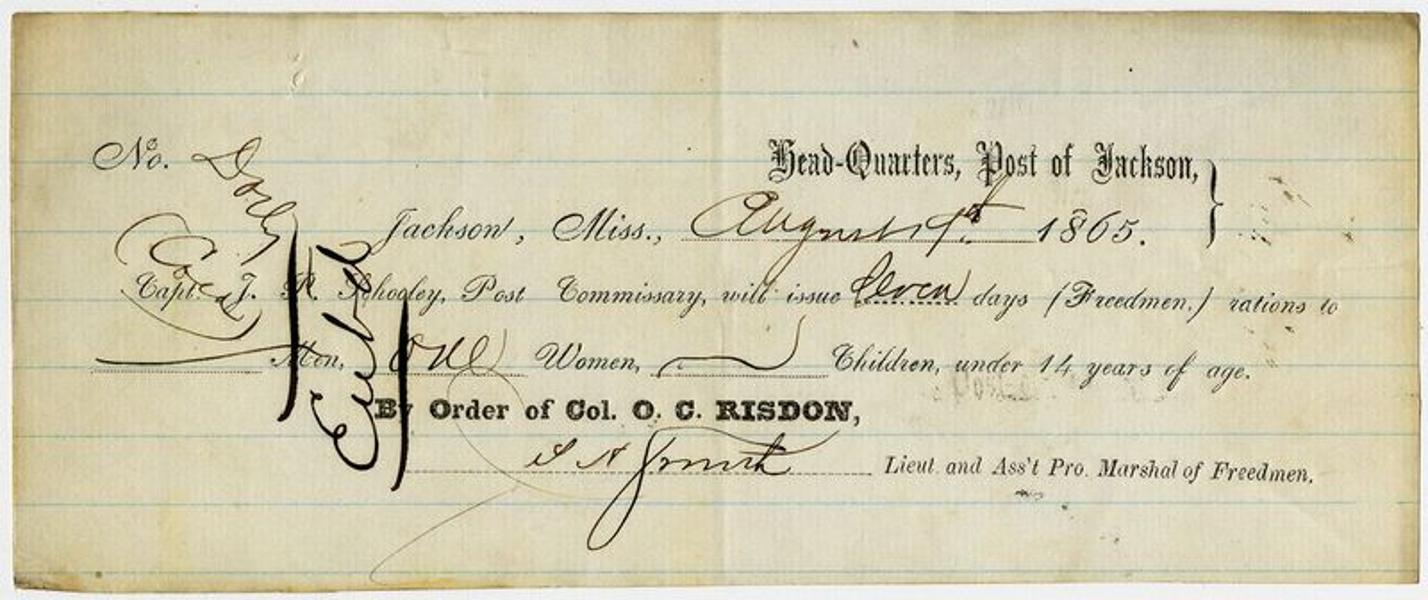 No.
Head-Quarters, Post of Jackson,
Jackson, Miss., August 1st 1865.
Capt. J. R. Schooley, Post Commissary, will issue Seven days (Freedmen.) rations to
Men, One Women, Children, under 14 years of age.
By Order of Col. O. C. RISDON,
S A Smith Lieut and Ass't Pro. Marshal of Freedmen.